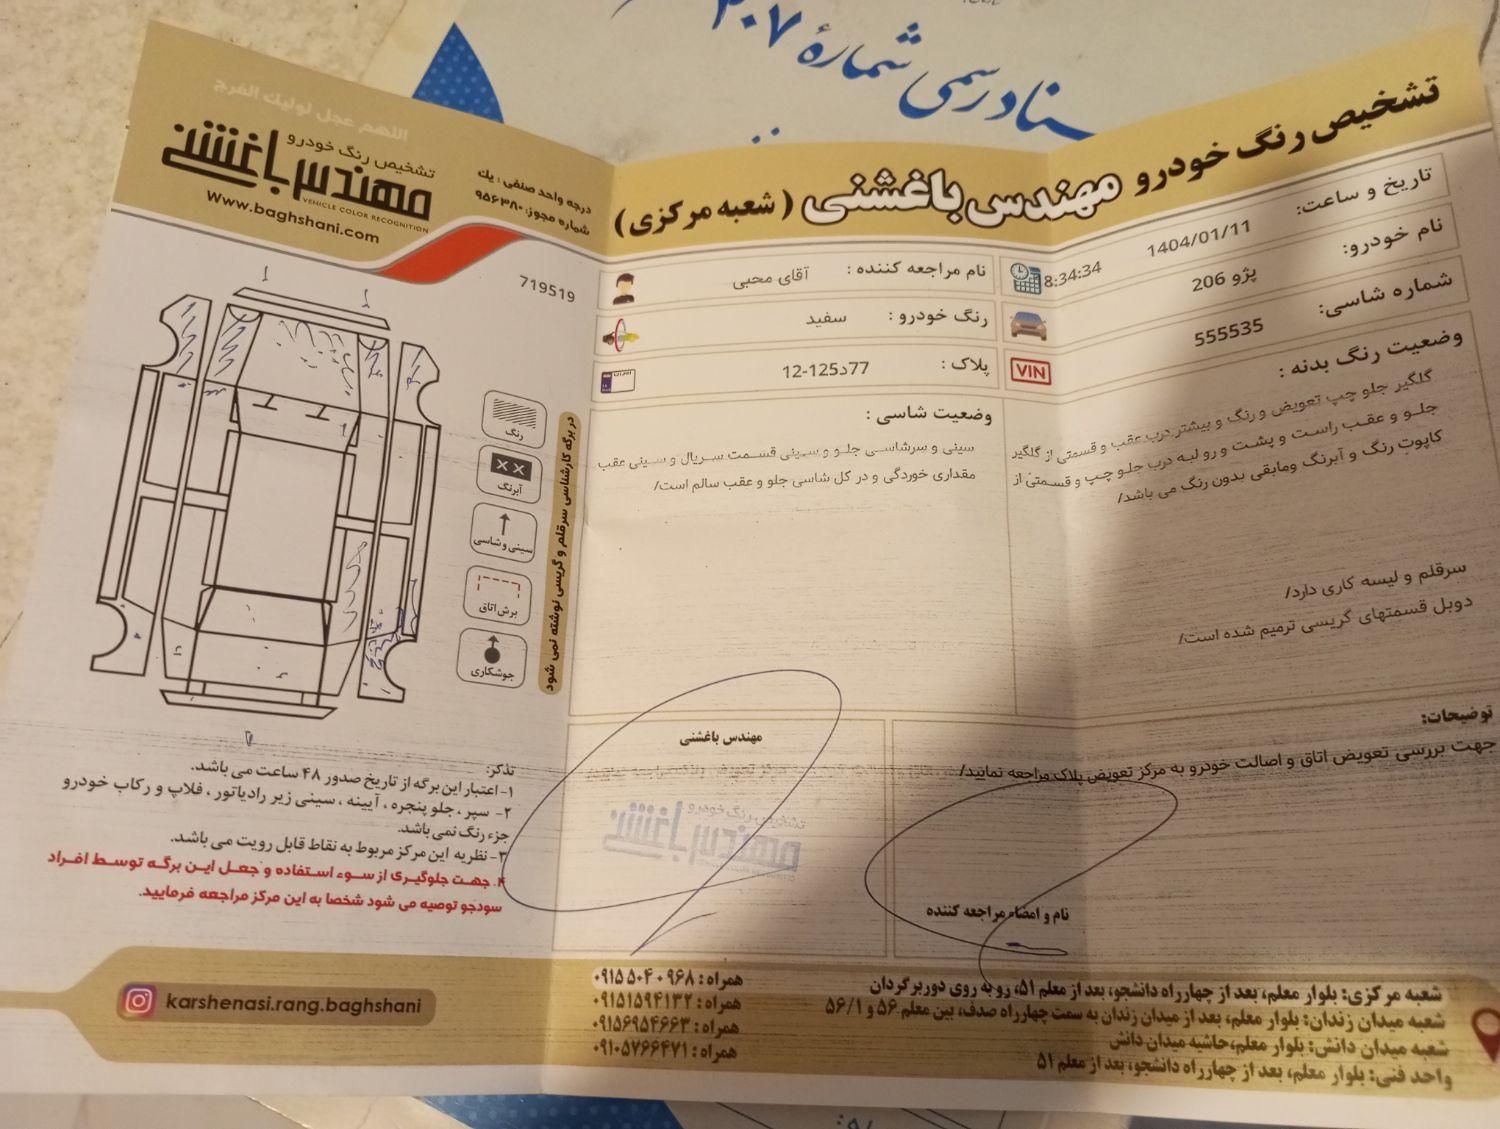 سناد رسمی شمارهٔ ۳۰۷
تشخیص رنگ خودرو مهندس باغشنی ( شعبه مرکزی )
تاریخ و ساعت: 1404/01/11 8:34:34
نام خودرو: پژو 206
شماره شاسی: 555535
VIN
نام مراجعه کننده : آقای محبی
رنگ خودرو : سفید
پلاک : 77د125-12
وضعیت رنگ بدنه :
گلگیر جلو چپ تعویض و رنگ و بیشتر درب عقب و قسمتی از گلگیر
جلو و عقب راست و پشت و رو لبه درب جلو چپ و قسمتی از
کاپوت رنگ و آبرنگ ومابقی بدون رنگ می باشد/
سرقلم و لیسه کاری دارد/
دوبل قسمتهای گریسی ترمیم شده است/
وضعیت شاسی :
سینی و سرشاسی جلو و سینی قسمت سریال و سینی عقب
مقداری خوردگی و در کل شاسی جلو و عقب سالم است/
توضیحات:
جهت بررسی تعویض اتاق و اصالت خودرو به مرکز تعویض پلاک مراجعه نمایید/
نام و امضاء مراجعه کننده
مهندس باغشنی
اللهم عجل لولیك الفرج
تشخیص رنگ خودرو
مهندس باغشنی
VEHICLE COLOR RECOGNITION
Www.baghshani.com
درجه واحد صنفی : یك
شماره مجوز: ۹۵۶۳۸۰
719519
رنگ
آبرنگ
سینی و شاسی
برش اتاق
جوشکاری
در برگه کارشناسی سرقلم و گریسی نوشته نمی شود
تذکر:
۱- اعتبار این برگه از تاریخ صدور ۴۸ ساعت می باشد.
۲- سپر ، جلو پنجره ، آیینه ، سینی زیر رادیاتور ، فلاپ و رکاب خودرو
جزء رنگ نمی باشد.
۳- نظریه این مرکز مربوط به نقاط قابل رویت می باشد.
۴. جهت جلوگیری از سوء استفاده و جعل این برگه توسط افراد
سودجو توصیه می شود شخصا به این مرکز مراجعه فرمایید.
karshenasi.rang.baghshani
شعبه مرکزی: بلوار معلم، بعد از چهارراه دانشجو، بعد از معلم ۵۱، رو به روی دوربرگردان
همراه : ۰۹۱۵۵۰۴۰۹۶۸
شعبه میدان زندان: بلوار معلم، بعد از میدان زندان به سمت چهارراه صدف، بین معلم ۵۶ و ۵۶/۱
همراه : ۰۹۱۵۱۵۹۴۱۳۲
شعبه میدان دانش: بلوار معلم،حاشیه میدان دانش
همراه : ۰۹۱۵۶۹۵۴۶۶۳
واحد فنی: بلوار معلم، بعد از چهارراه دانشجو، بعد از معلم ۵۱
همراه : ۰۹۱۰۵۷۶۶۴۷۱